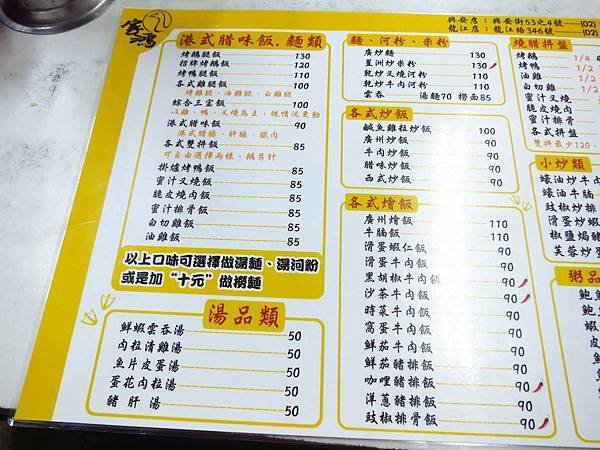 賓鴻
興安店：興安街53之4號——(02)
龍江店：龍江路346號——(02)
港式腊味飯．麵類
烤鵝腿飯 130
招牌烤鵝飯 120
烤鴨腿飯 110
各式雞腿飯 100
烤雞腿、油雞腿、白雞腿
綜合三寶飯 100
以雞、鴨、叉燒為主，視情況更動
港式腊味飯 90
港式腊腸、肝腸、臘肉
各式雙拼飯 85
可自由選擇兩樣，鵝另計
掛爐烤鴨飯 85
蜜汁叉燒飯 85
脆皮燒肉飯 85
蜜汁排骨飯 85
白切雞飯 85
油雞飯 85
以上口味可選擇做湯麵、湯河粉
或是加“十元”做撈麵
湯品類
鮮蝦雲吞湯 50
肉拉清雞湯 50
魚片皮蛋湯 50
蛋花肉拉湯 50
豬肝湯 50
麵、河粉、米粉
廣炒麵 130
星洲炒米粉 130
乾炒叉燒河粉 110
乾炒牛肉河粉 110
雲吞 湯麵70 撈面85
各式炒飯
鹹魚雞粒炒飯 100
廣州炒飯 90
牛肉炒飯 90
腊味炒飯 90
西式炒飯 90
各式燴飯
廣州燴飯 110
牛腩飯 110
滑蛋蝦仁飯 110
滑蛋牛肉飯 90
黑胡椒牛肉飯 90
沙茶牛肉飯 90
時菜牛肉飯 90
窩蛋牛肉飯 90
鮮茄牛肉飯 90
鮮茄豬排飯 90
咖哩豬排飯 90
洋蔥豬排飯 90
豉椒排骨飯 90
燒腊拼盤
烤鵝 1/4
烤鴨 1/2
油雞 1/2
白切雞 1/2
蜜汁叉燒
脆皮燒肉
蜜汁排骨
各式拼盤
雙拼最少120
小炒類
蠔油炒牛
蠔油牛腩
豉椒炒排
滑蛋炒蝦
椒鹽焗豬
芙蓉炒蛋
粥品
鮑